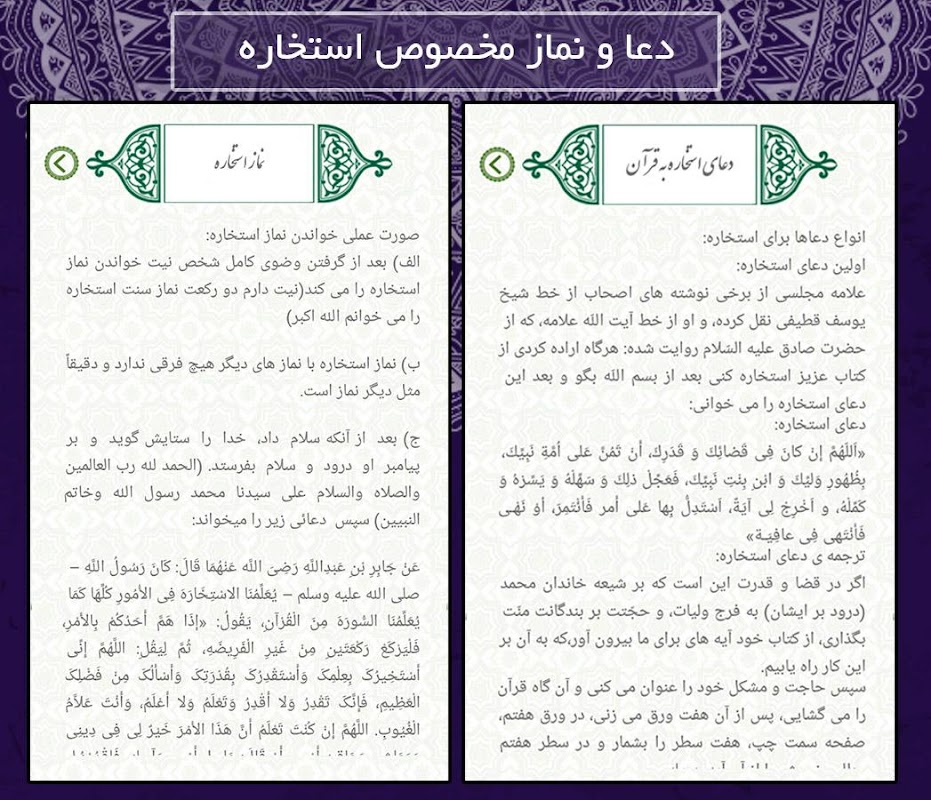 دعا و نماز مخصوص استخاره
دعای استخاره به قرآن
انواع دعاها برای استخاره:
اولین دعای استخاره:
علامه مجلسی از برخی نوشته های اصحاب از خط شیخ
یوسف قطیفی نقل کرده، و او از خط آیت الله علامه، که از
حضرت صادق علیه السّلام روایت شده: هرگاه اراده کردی از
کتاب عزیز استخاره کنی بعد از بسم الله بگو و بعد این
دعای استخاره را می خوانی:
دعای استخاره:
«اَللّهُمَّ إنْ کانَ فِی قَضائِکَ وَ قَدَرِکَ، أنْ تَمُنَّ عَلی أمَّةِ نَبِیِّکَ،
بِظُهُورِ وَلِیِّکَ وَ ابْنِ بِنْتِ نَبِیِّکَ، فَعَجِّلْ ذلِکَ وَ سَهِّلْهُ وَ یَسِّرْهُ وَ
کَمِّلْهُ، و اَخْرِجْ لِی آیَةً، اَسْتَدِلُّ بِها عَلی أمْر فَأَئْتَمِرَ، أوْ نَهْی
فَأَنْتَهی فِی عافِیَة»
ترجمه ی دعای استخاره:
اگر در قضا و قدرت این است که بر شیعه خاندان محمد
(درود بر ایشان) به فرج ولیات، و حجّتت بر بندگانت منّت
بگذاری، از کتاب خود آیه های برای ما بیرون آور،که به آن بر
این کار راه یابیم.
سپس حاجت و مشکل خود را عنوان می کنی و آن گاه قرآن
را می گشایی، پس از آن هفت ورق می زنی، در ورق هفتم،
صفحه سمت چپ، هفت سطر را بشمار و در سطر هفتم
نماز استخاره
صورت عملی خواندن نماز استخاره:
الف) بعد از گرفتن وضوی کامل شخص نیت خواندن نماز
استخاره را می کند(نیت دارم دو رکعت نماز سنت استخاره
را می خوانم الله اکبر)
ب) نماز استخاره با نماز های دیگر هیچ فرقی ندارد و دقیقاً
مثل دیگر نماز است.
ج) بعد از آنکه سلام داد، خدا را ستایش گوید و بر
پیامبر او درود و سلام بفرستد. (الحمد لله رب العالمین
والصلاه والسلام علی سیدنا محمد رسول الله وخاتم
النبیین) سپس دعائی زیر را میخواند:
عَنْ جَابِرِ بْنِ عَبدِاللَّهِ رَضِیَ اللَّه عَنْهُمَا قَالَ: کَانَ رَسُولُ اللَّهِ –
صلی الله علیه وسلم – یُعَلِّمُنَا الاسْتِخَارَهَ فِی الأمُورِ کُلِّهَا کَمَا
یُعَلِّمُنَا السُّورَهَ مِنَ الْقُرْآنِ، یَقُولُ: «إِذَا هَمَّ أَحَدُکُمْ بِالأمْرِ،
فَلْیَرْکَعْ رَکْعَتَیْنِ مِنْ غَیْرِ الْفَرِیضَهِ، ثُمَّ لِیَقُلِ: اللَّهُمَّ إِنِّی
أَسْتَخِیرُکَ بِعِلْمِکَ وَأَسْتَقْدِرُکَ بِقُدْرَتِکَ وَأَسْأَلُکَ مِنْ فَضْلِکَ
الْعَظِیمِ، فَإِنَّکَ تَقْدِرُ وَلا أَقْدِرُ وَتَعْلَمُ وَلا أَعْلَمُ، وَأَنْتَ عَلاَّمُ
الْغُیُوبِ. اللَّهُمَّ إِنْ کُنْتَ تَعْلَمُ أَنَّ هَذَا الأمْرَ خَیْرٌ لِی فِی دِینِی